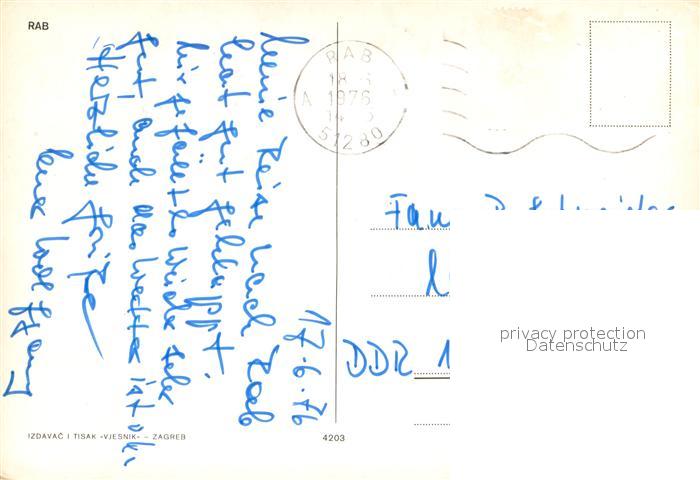 RAB
17.6.76
meine Reise nach Rab
hat gut geklappt.
hier gefällt es mir sehr
gut, auch das Wetter ist ok.
Herzliche Grüße
RAB
18 6
A 1976
14
51280
Fam
DDR 1
privacy protection
Datenschutz
IZDAVAČ I TISAK «VJESNIK» – ZAGREB
4203